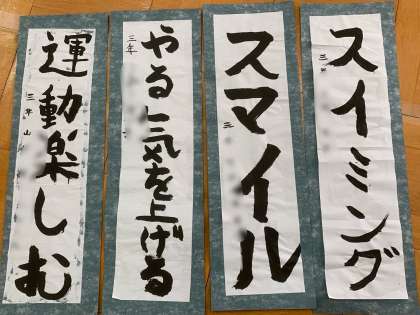 スイミング
スマイル
三年
やる気を上げる
三年
運動楽しむ